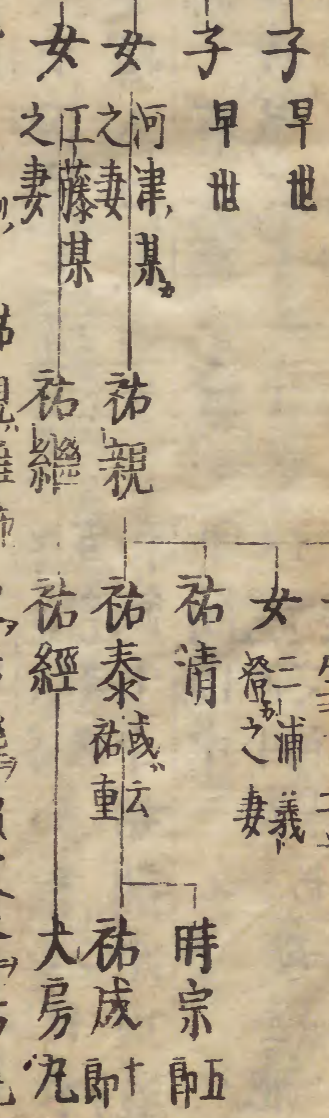 子 早世
子 早世
女 河津某ガ
之妻
女 工藤某
之妻
祐親
祐継
女 三浦義
澄ガ之妻
祐清
祐泰 或云
祐重
祐經
時宗 五
郎
祐成 十
郎
犬房丸